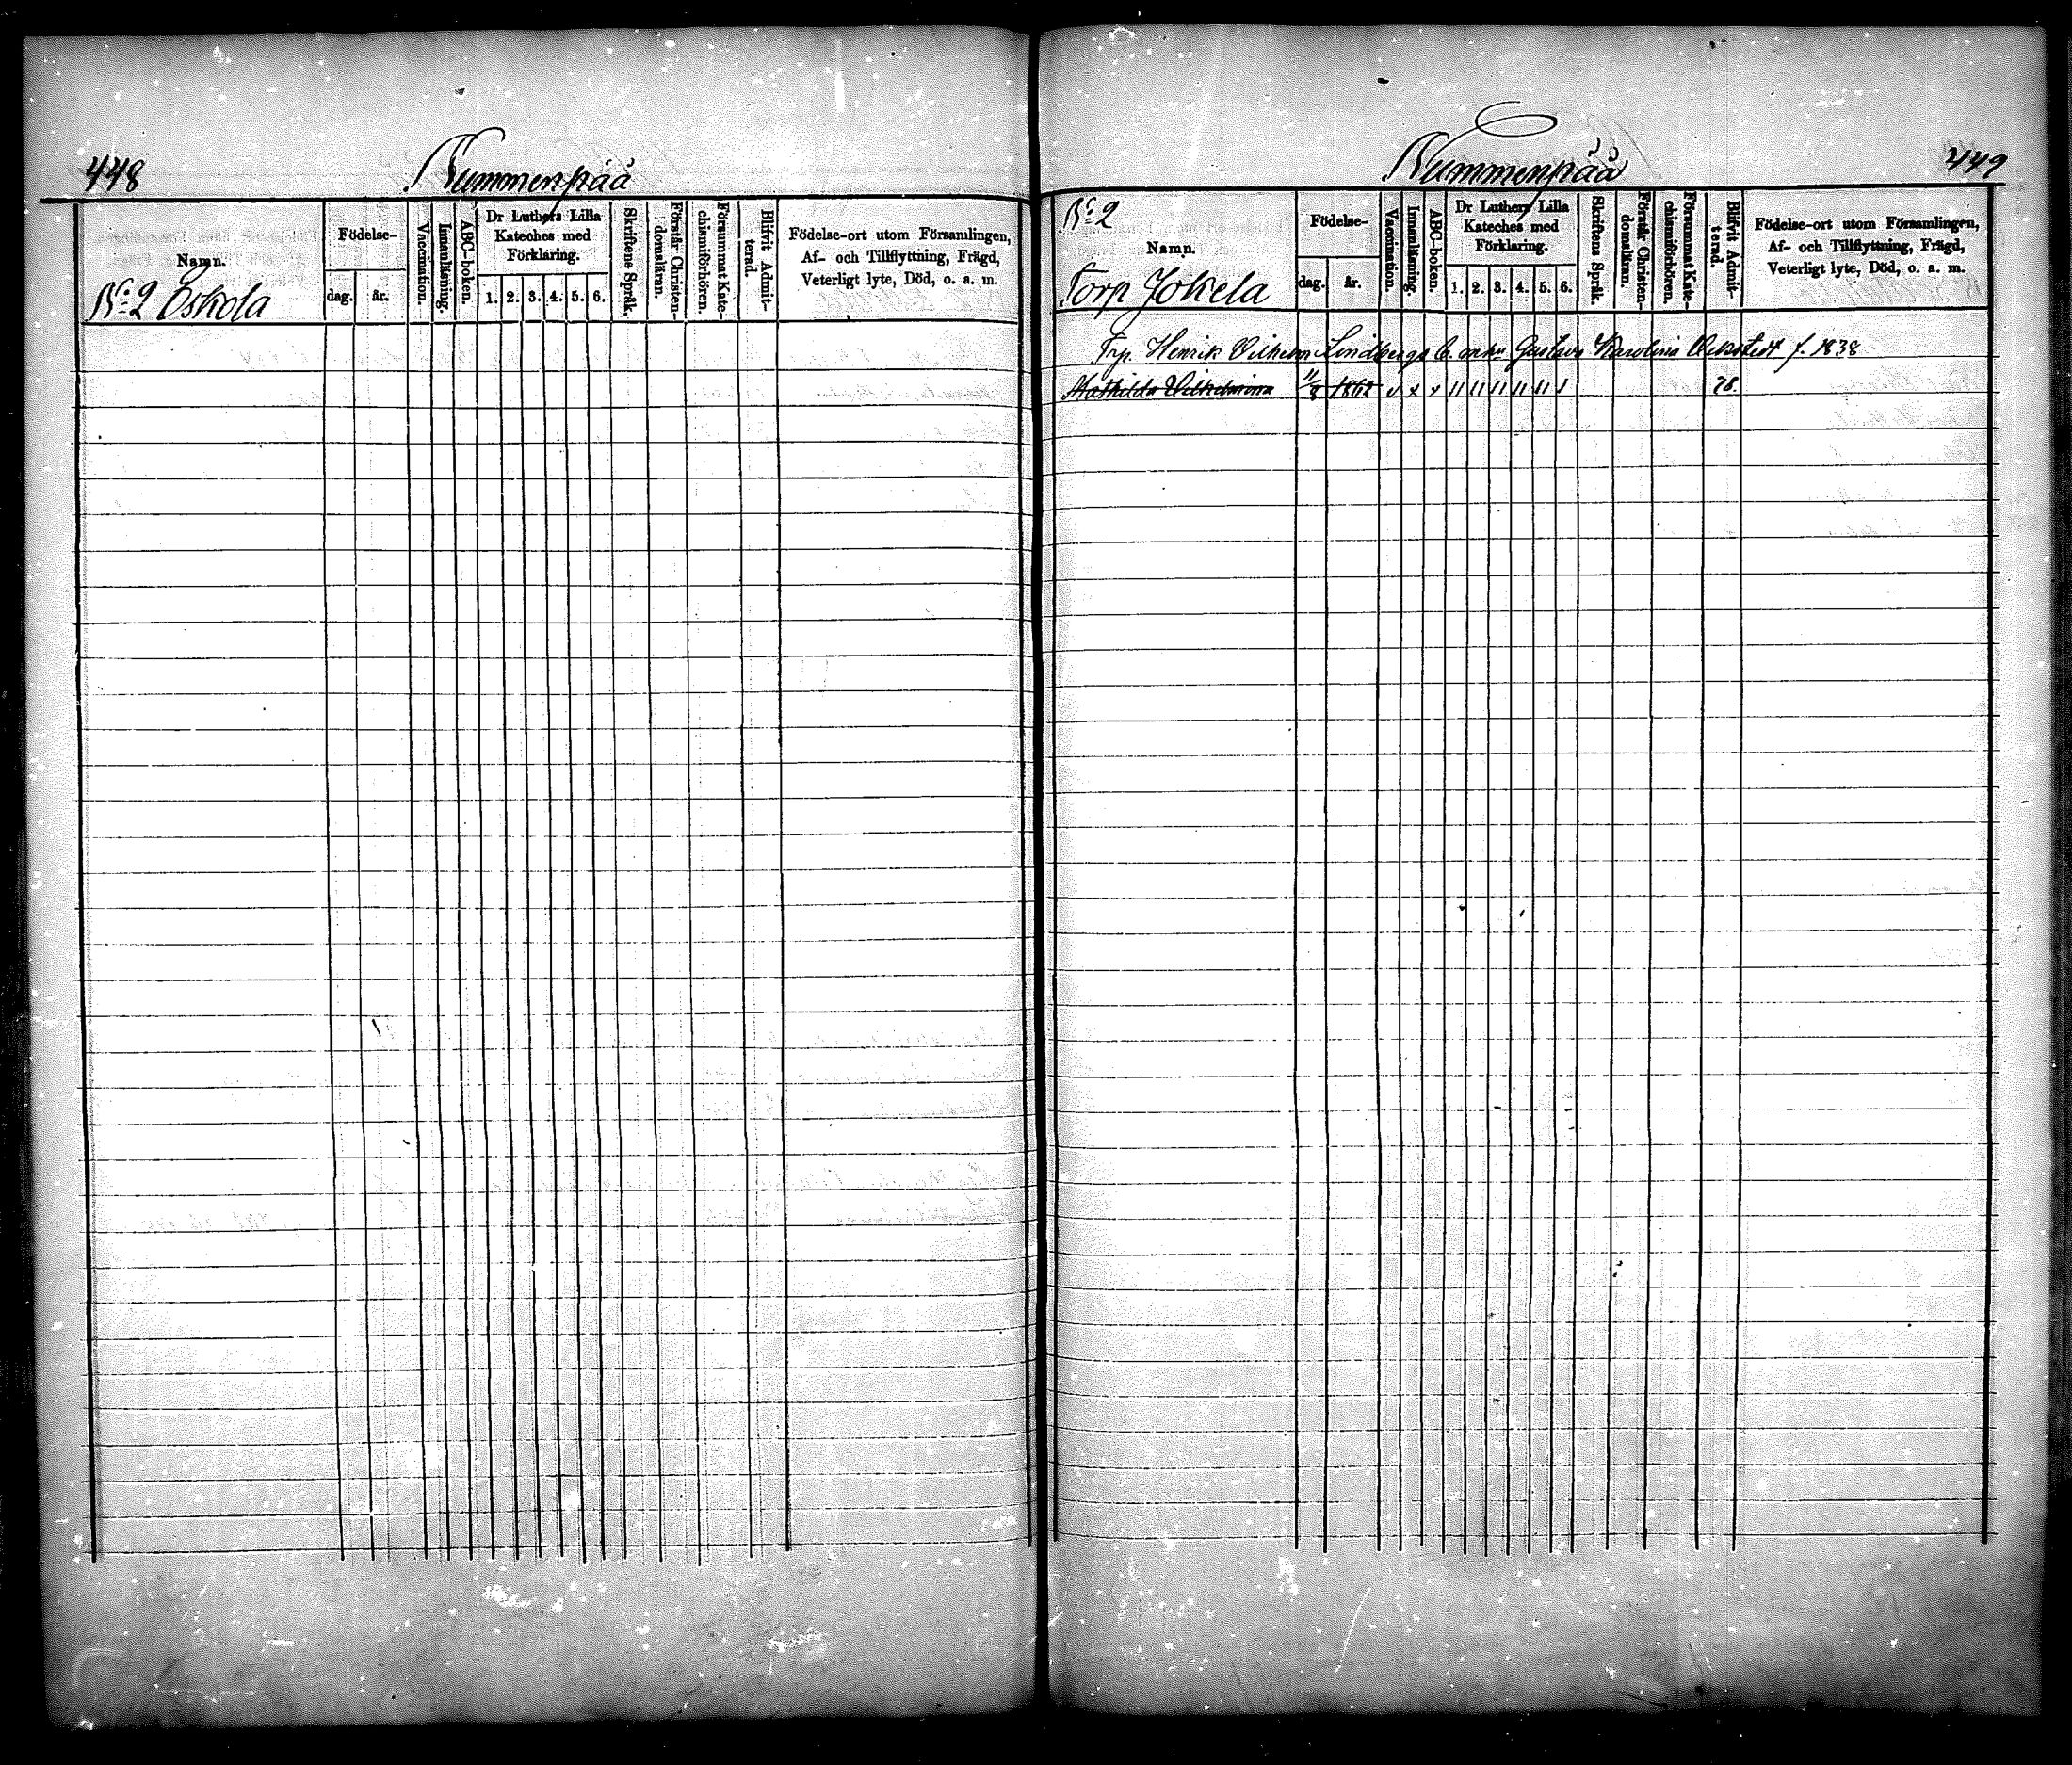 448
Nummenpää
Namn.
Födelse-
dag.
år.
Vaccination.
Innanläsning.
ABC-boken.
Dr Luthers Lilla
Kateches med
Förklaring.
1. 2. 3. 4. 5. 6.
Skriftens Språk.
Förstår Christen-
domsläran.
Försummat Kate-
chismiförhören.
Blifvit Admit-
terad.
Födelse-ort utom Församlingen,
Af- och Tillflyttning, Frägd,
Veterligt lyte, Död, o. a. m.
No 2 Eskola
Nummenpää
449
No 2
Namn.
Torp Jokela
Födelse-
dag.
år.
Vaccination.
Innanläsning.
ABC-boken.
Dr Luthers Lilla
Kateches med
Förklaring.
1. 2. 3. 4. 5. 6.
Skriftens Språk.
Förstår Christen-
domsläran.
Försummat Kate-
chismiförhören.
Blifvit Admit-
terad.
Födelse-ort utom Församlingen,
Af- och Tillflyttning, Frägd,
Veterligt lyte, Död, o. a. m.
Trp. Henrik Vilhelm Lindbergs Gustava Karolina f. 1838
Mathilda Vilhelmina 11/8 1862 78.